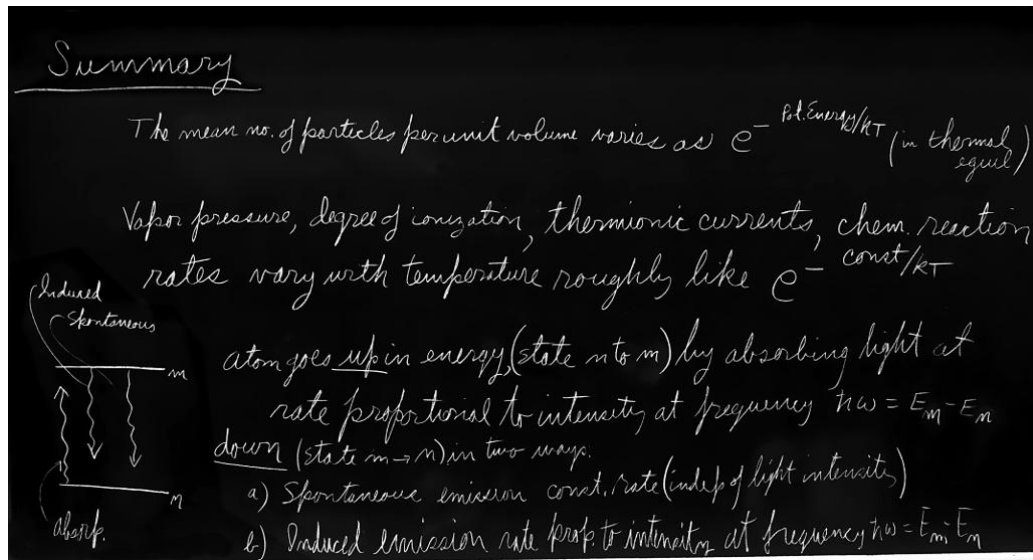 Summary
The mean no. of particles per unit volume varies as e^{- Pot. Energy/kT} (in thermal equil)
Vapor pressure, degree of ionization, thermionic currents, chem. reaction
rates vary with temperature roughly like e^{- const/kT}
Induced
Spontaneous
m
n
absorp.
atom goes up in energy (state n to m) by absorbing light at
rate proportional to intensity at frequency ħω = E_m - E_n
down (state m → n) in two ways:
a) Spontaneous emission const. rate (indep of light intensity)
b) Induced emission rate prop. to intensity at frequency ħω = E_m - E_n